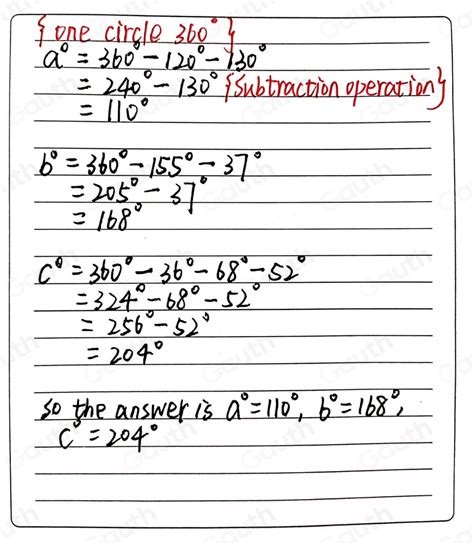 { one circle 360° }
a° = 360° - 120° - 130°
= 240° - 130° {Subtraction operation}
= 110°
b° = 360° - 155° - 37°
= 205° - 37°
= 168°
c° = 360° - 36° - 68° - 52°
= 324° - 68° - 52°
= 256° - 52°
= 204°
so the answer is a° = 110°, b° = 168°,
c° = 204°